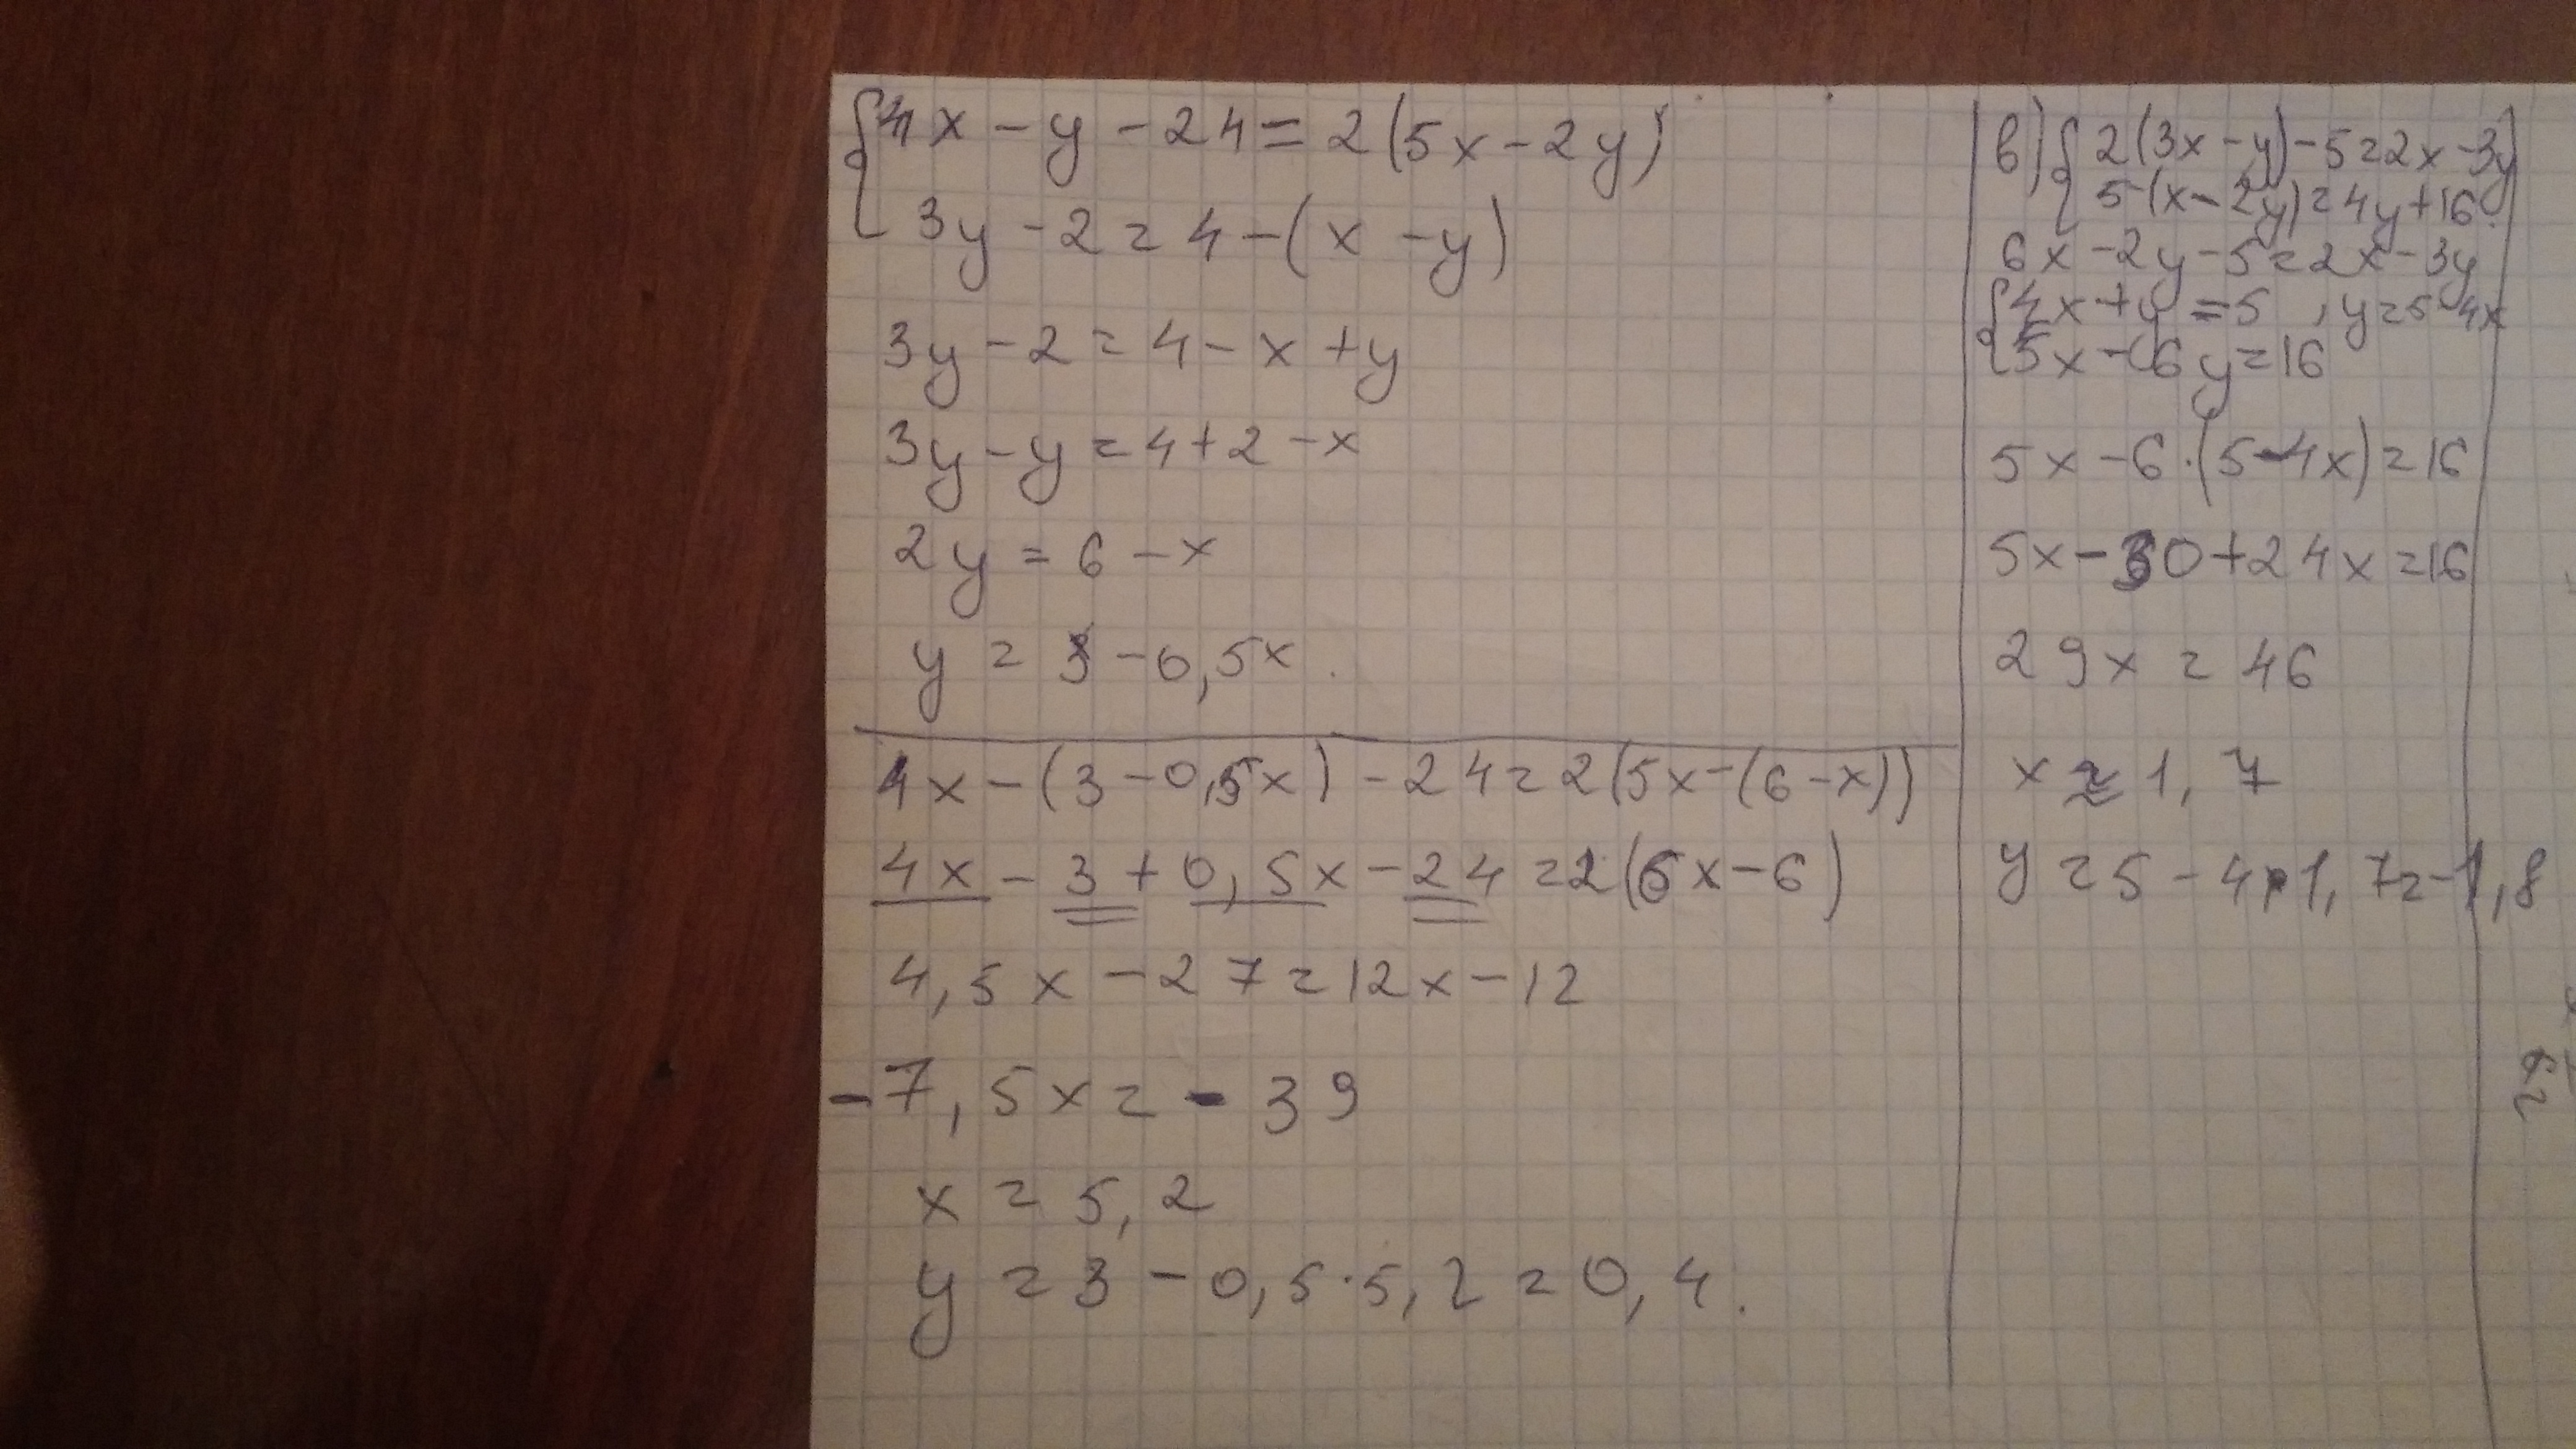 {4x - y - 24 = 2(5x - 2y)
3y - 2 = 4 - (x - y)
3y - 2 = 4 - x + y
3y - y = 4 + 2 - x
2y = 6 - x
y = 3 - 0,5x.
4x - (3 - 0,5x) - 24 = 2(5x - (6 - x))
4x - 3 + 0,5x - 24 = 2(6x - 6)
4,5x - 27 = 12x - 12
-7,5x = -39
x = 5,2
y = 3 - 0,5 · 5,2 = 0,4.
в) {2(3x - y) - 5 = 2x - 3y
5 - (x - 2y) = 4y + 16
6x - 2y - 5 = 2x - 3y
{4x + y = 5, y = 5 - 4x
5x - 6y = 16
5x - 6 · (5 - 4x) = 16
5x - 30 + 24x = 16
29x = 46
x ≈ 1,7
y = 5 - 4 · 1,7 = -1,8